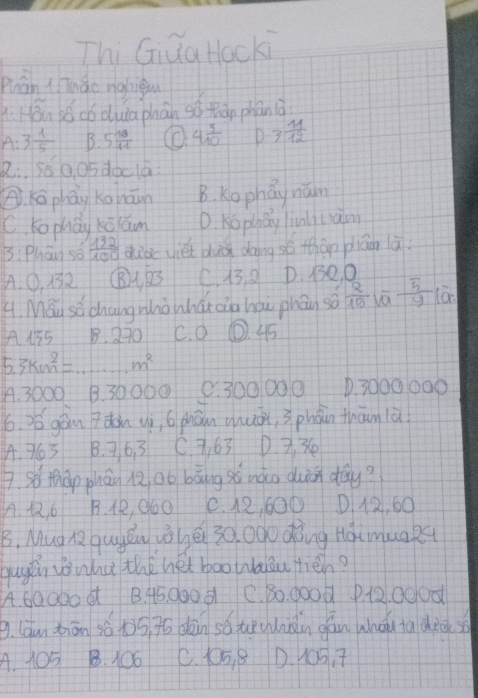 Thi Giữa Học kì
Phần 1: Trắc nghiệm
1. Hỗn số có chứa phân số thập phân là
A. 3 1/5 B. 5 C. 4 3/10 D. 3 11/12
2. Số 0,05 đọc là:
A. Kô phẩy Ko năm B. Ko phẩy năm
C. Ko phẩy D. Kô phẩy linh năm
3. Phân số được viết dưới dạng số thập phân là.
A. 0,132 B. 1,23 C. 13,2 D. 132,0
4. Mẫu số chung nhỏ nhất của hai phân số và 5/9 là:
A. 135 B. 270 C. 0 D. 45
5. 3Km² = ........ m²
A. 3000 B. 30 000 C. 300 000 D. 3000 000
6. Số gồm 7 đơn vị, 6 phần mười, 3 phần trăm là:
A. 763 B. 7,6,3 C. 7,63 D. 7,36
7. Số thập phân 12,06 bằng số nào dưới đây?
A. 12,6 B. 12,060 C. 12,600 D. 12,60
8. Mua 12 quyển vở hết 30.000 đồng Hỏi mua 24
quyển vở như thế hết bao nhiêu tiền?
A. 60.000 đ B. 45.000 đ C. 80.000 đ D. 12.000đ
9. Làm tròn số 105,76 đến số tự nhiên gần nhất ta được số
A. 105 B. 106 C. 105,8 D. 105,7